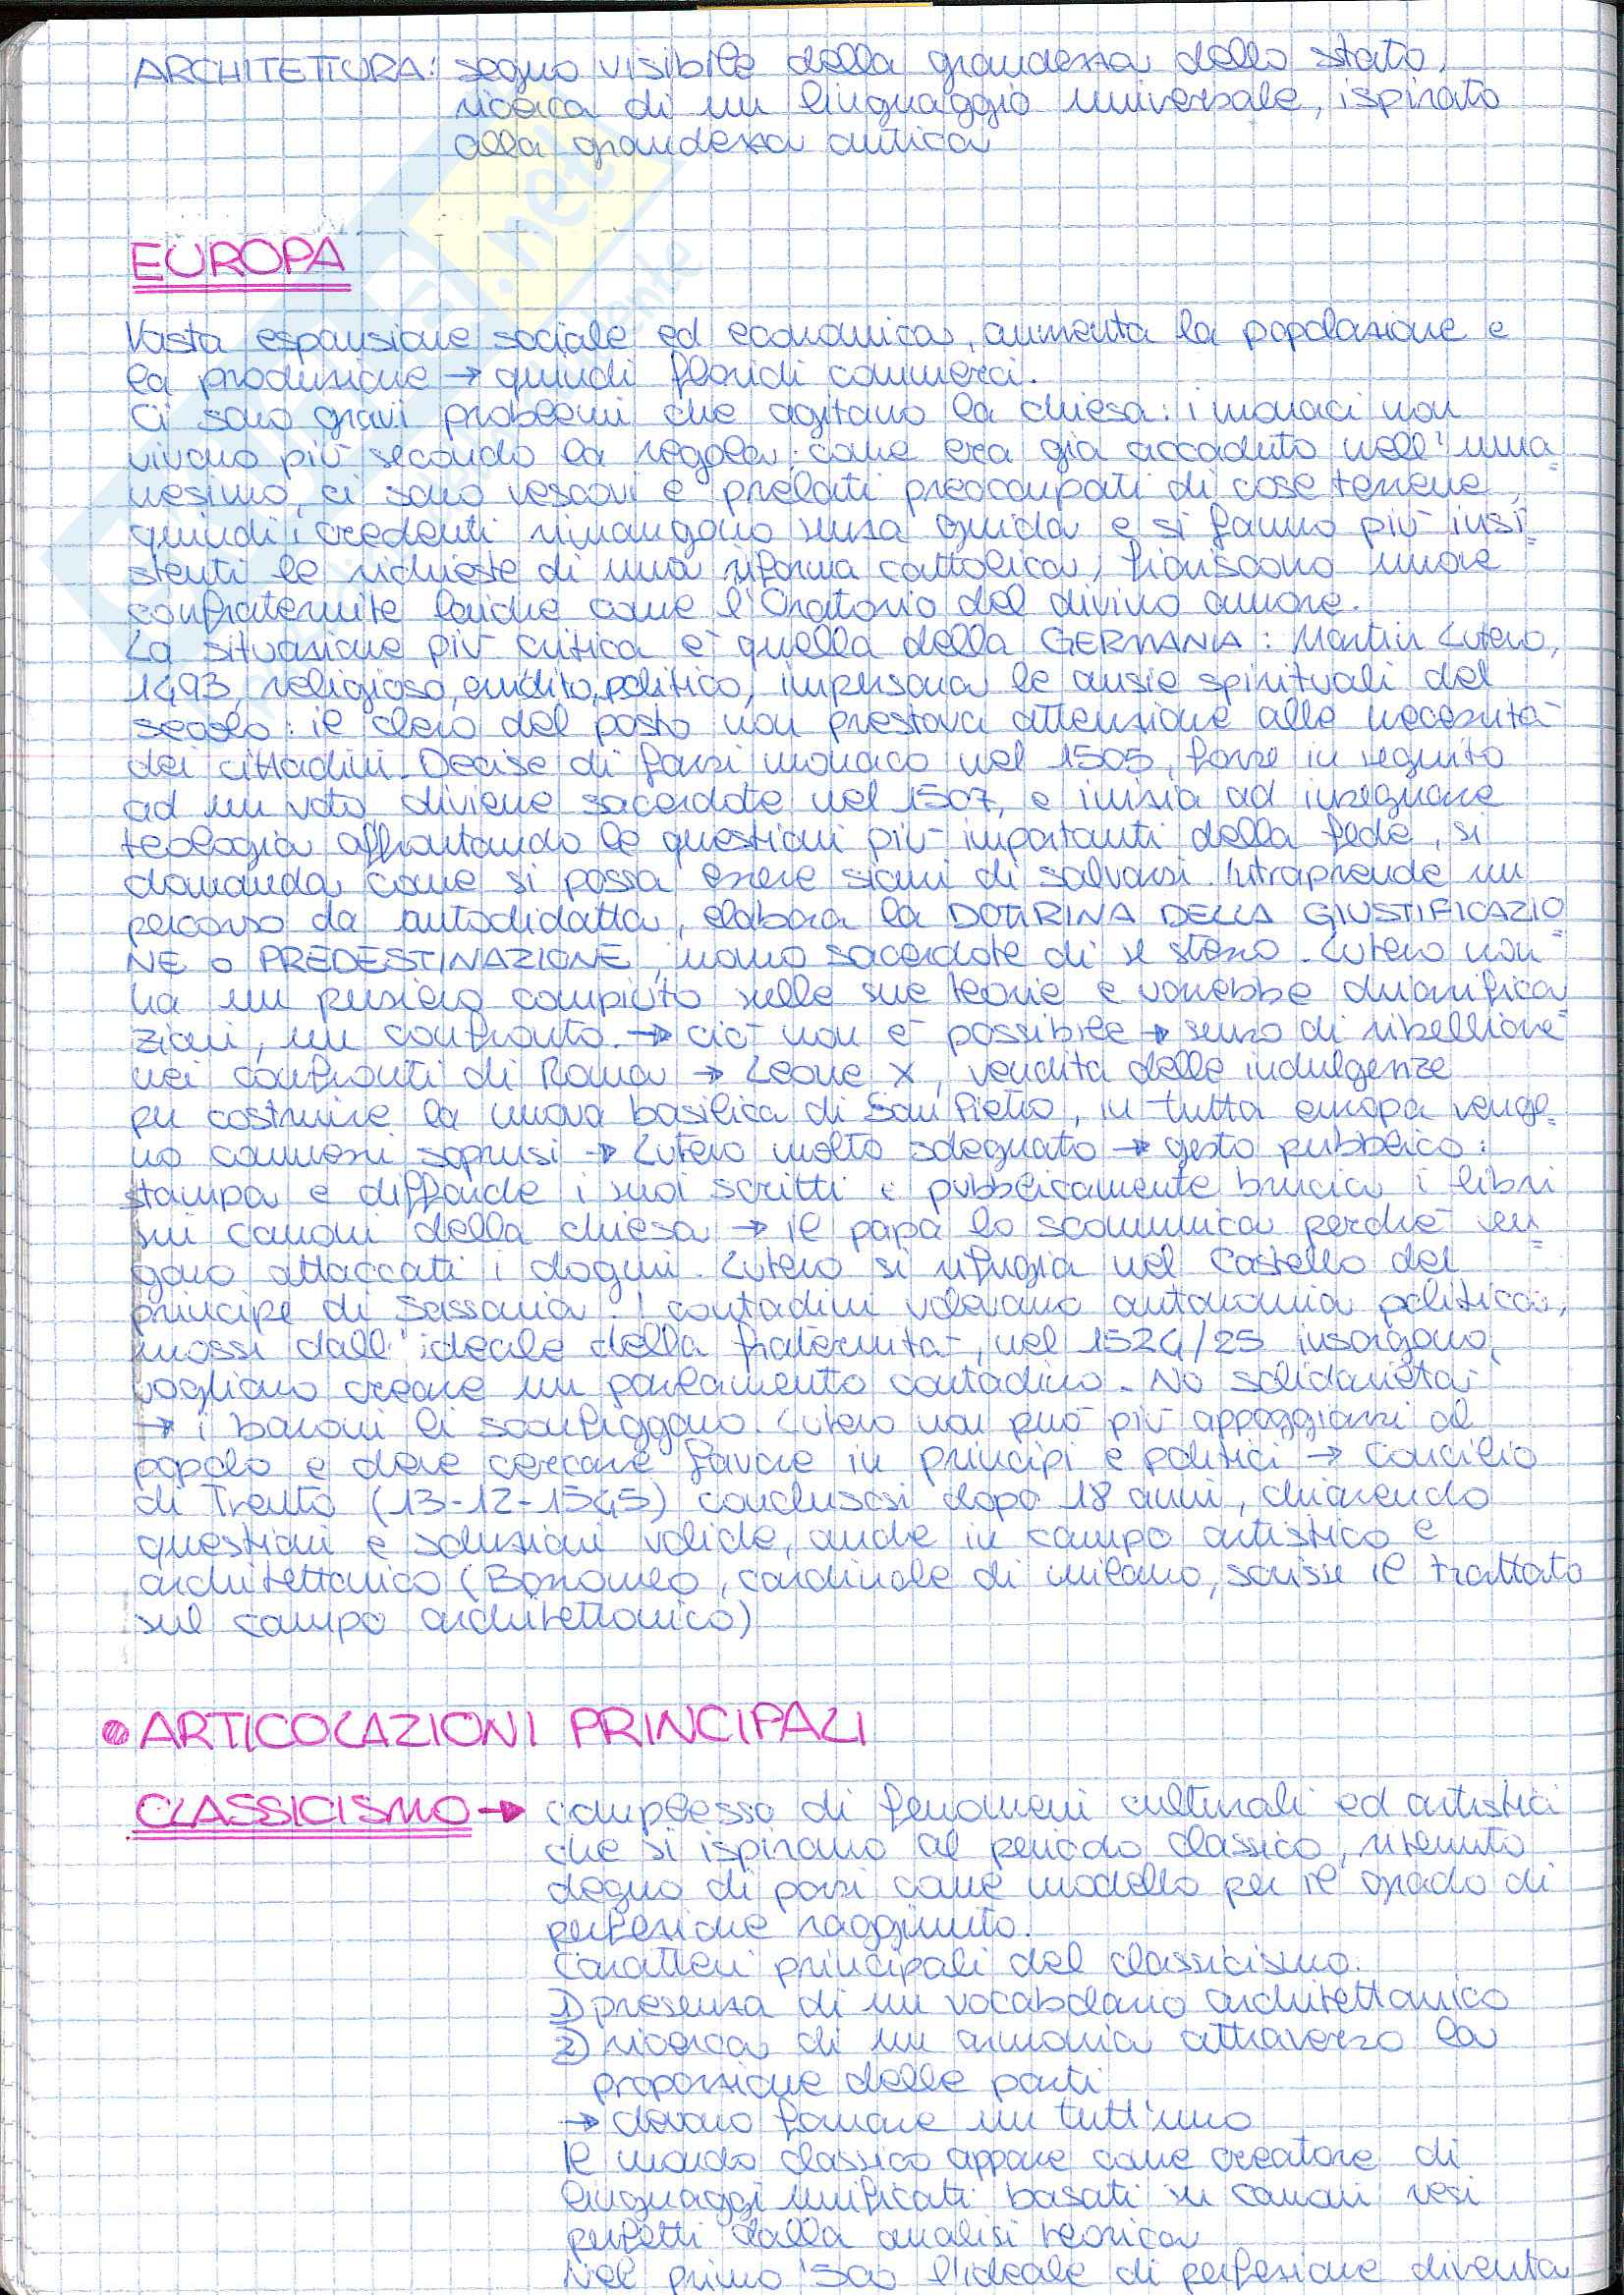 ARCHITETTURA: segno visibile della grandezza dello stato,
ricerca di un linguaggio universale, ispirato
alla grandezza antica
EUROPA
Vasta espansione sociale ed economica, aumenta la popolazione e
la produzione → quindi floridi commerci.
Ci sono gravi problemi che agitano la chiesa: i monaci non
vivono più secondo la regola come era già accaduto nell'uma=
nesimo, ci sono vescovi e prelati preoccupati di cose terrene,
quindi i credenti rimangono senza guida e si fanno più insi=
stenti le richieste di una riforma cattolica, fioriscono nuove
confraternite laiche come l'Oratorio del divino amore.
La situazione più critica è quella della GERMANIA: Martin Lutero,
1493, religioso, erudito, politico, impersona le ansie spirituali del
secolo: il clero del posto non prestava attenzione alle necessità
dei cittadini. Decise di farsi monaco nel 1505, forse in seguito
ad un voto, diviene sacerdote nel 1507, e inizia ad insegnare
teologia affrontando le questioni più importanti della fede, si
domanda come si possa essere sicuri di salvarsi. Intraprende un
percorso da autodidatta, elabora la DOTTRINA DELLA GIUSTIFICAZIO=
NE O PREDESTINAZIONE, uomo sacerdote di se stesso. Lutero non
ha un pensiero compiuto sulle sue teorie e vorrebbe chiarifica=
zioni, un confronto. → ciò non è possibile → senso di ribellione
nei confronti di Roma → Leone X, vendita delle indulgenze
per costruire la nuova basilica di San Pietro, in tutta europa vengo=
no commessi soprusi → Lutero molto sdegnato → gesto pubblico:
stampa e diffonde i suoi scritti e pubblicamente brucia i libri
sui canoni della chiesa → il papa lo scomunica perché ven=
gono attaccati i dogmi. Lutero si rifugia nel Castello del
principe di Sassonia. I contadini volevano autonomia politica,
mossi dall'ideale della fraternità, nel 1524/25 insorgono,
vogliono creare un parlamento contadino. No solidarietà
→ i baroni li sconfiggono. Lutero non può più appoggiarsi al
popolo e deve cercare favore in principi e politici → Concilio
di Trento (13-12-1545) conclusosi dopo 18 anni, chiarendo
questioni e soluzioni valide, anche in campo artistico e
architettonico (Borromeo, cardinale di milano, scrisse il trattato
sul campo architettonico)
ARTICOLAZIONI PRINCIPALI
CLASSICISMO → complesso di fenomeni culturali ed artistici
che si ispirano al periodo classico, ritenuto
degno di porsi come modello per il grado di
perfezione raggiunto.
Caratteri principali del classicismo:
1) presenza di un vocabolario architettonico
2) ricerca di un armonia attraverso la
proporzione delle parti
→ devono formare un tutt'uno
Il mondo classico appare come creatore di
linguaggi unificati basati su canoni resi
perfetti dalla analisi teorica
Nel primo '500 l'ideale di perfezione diventa